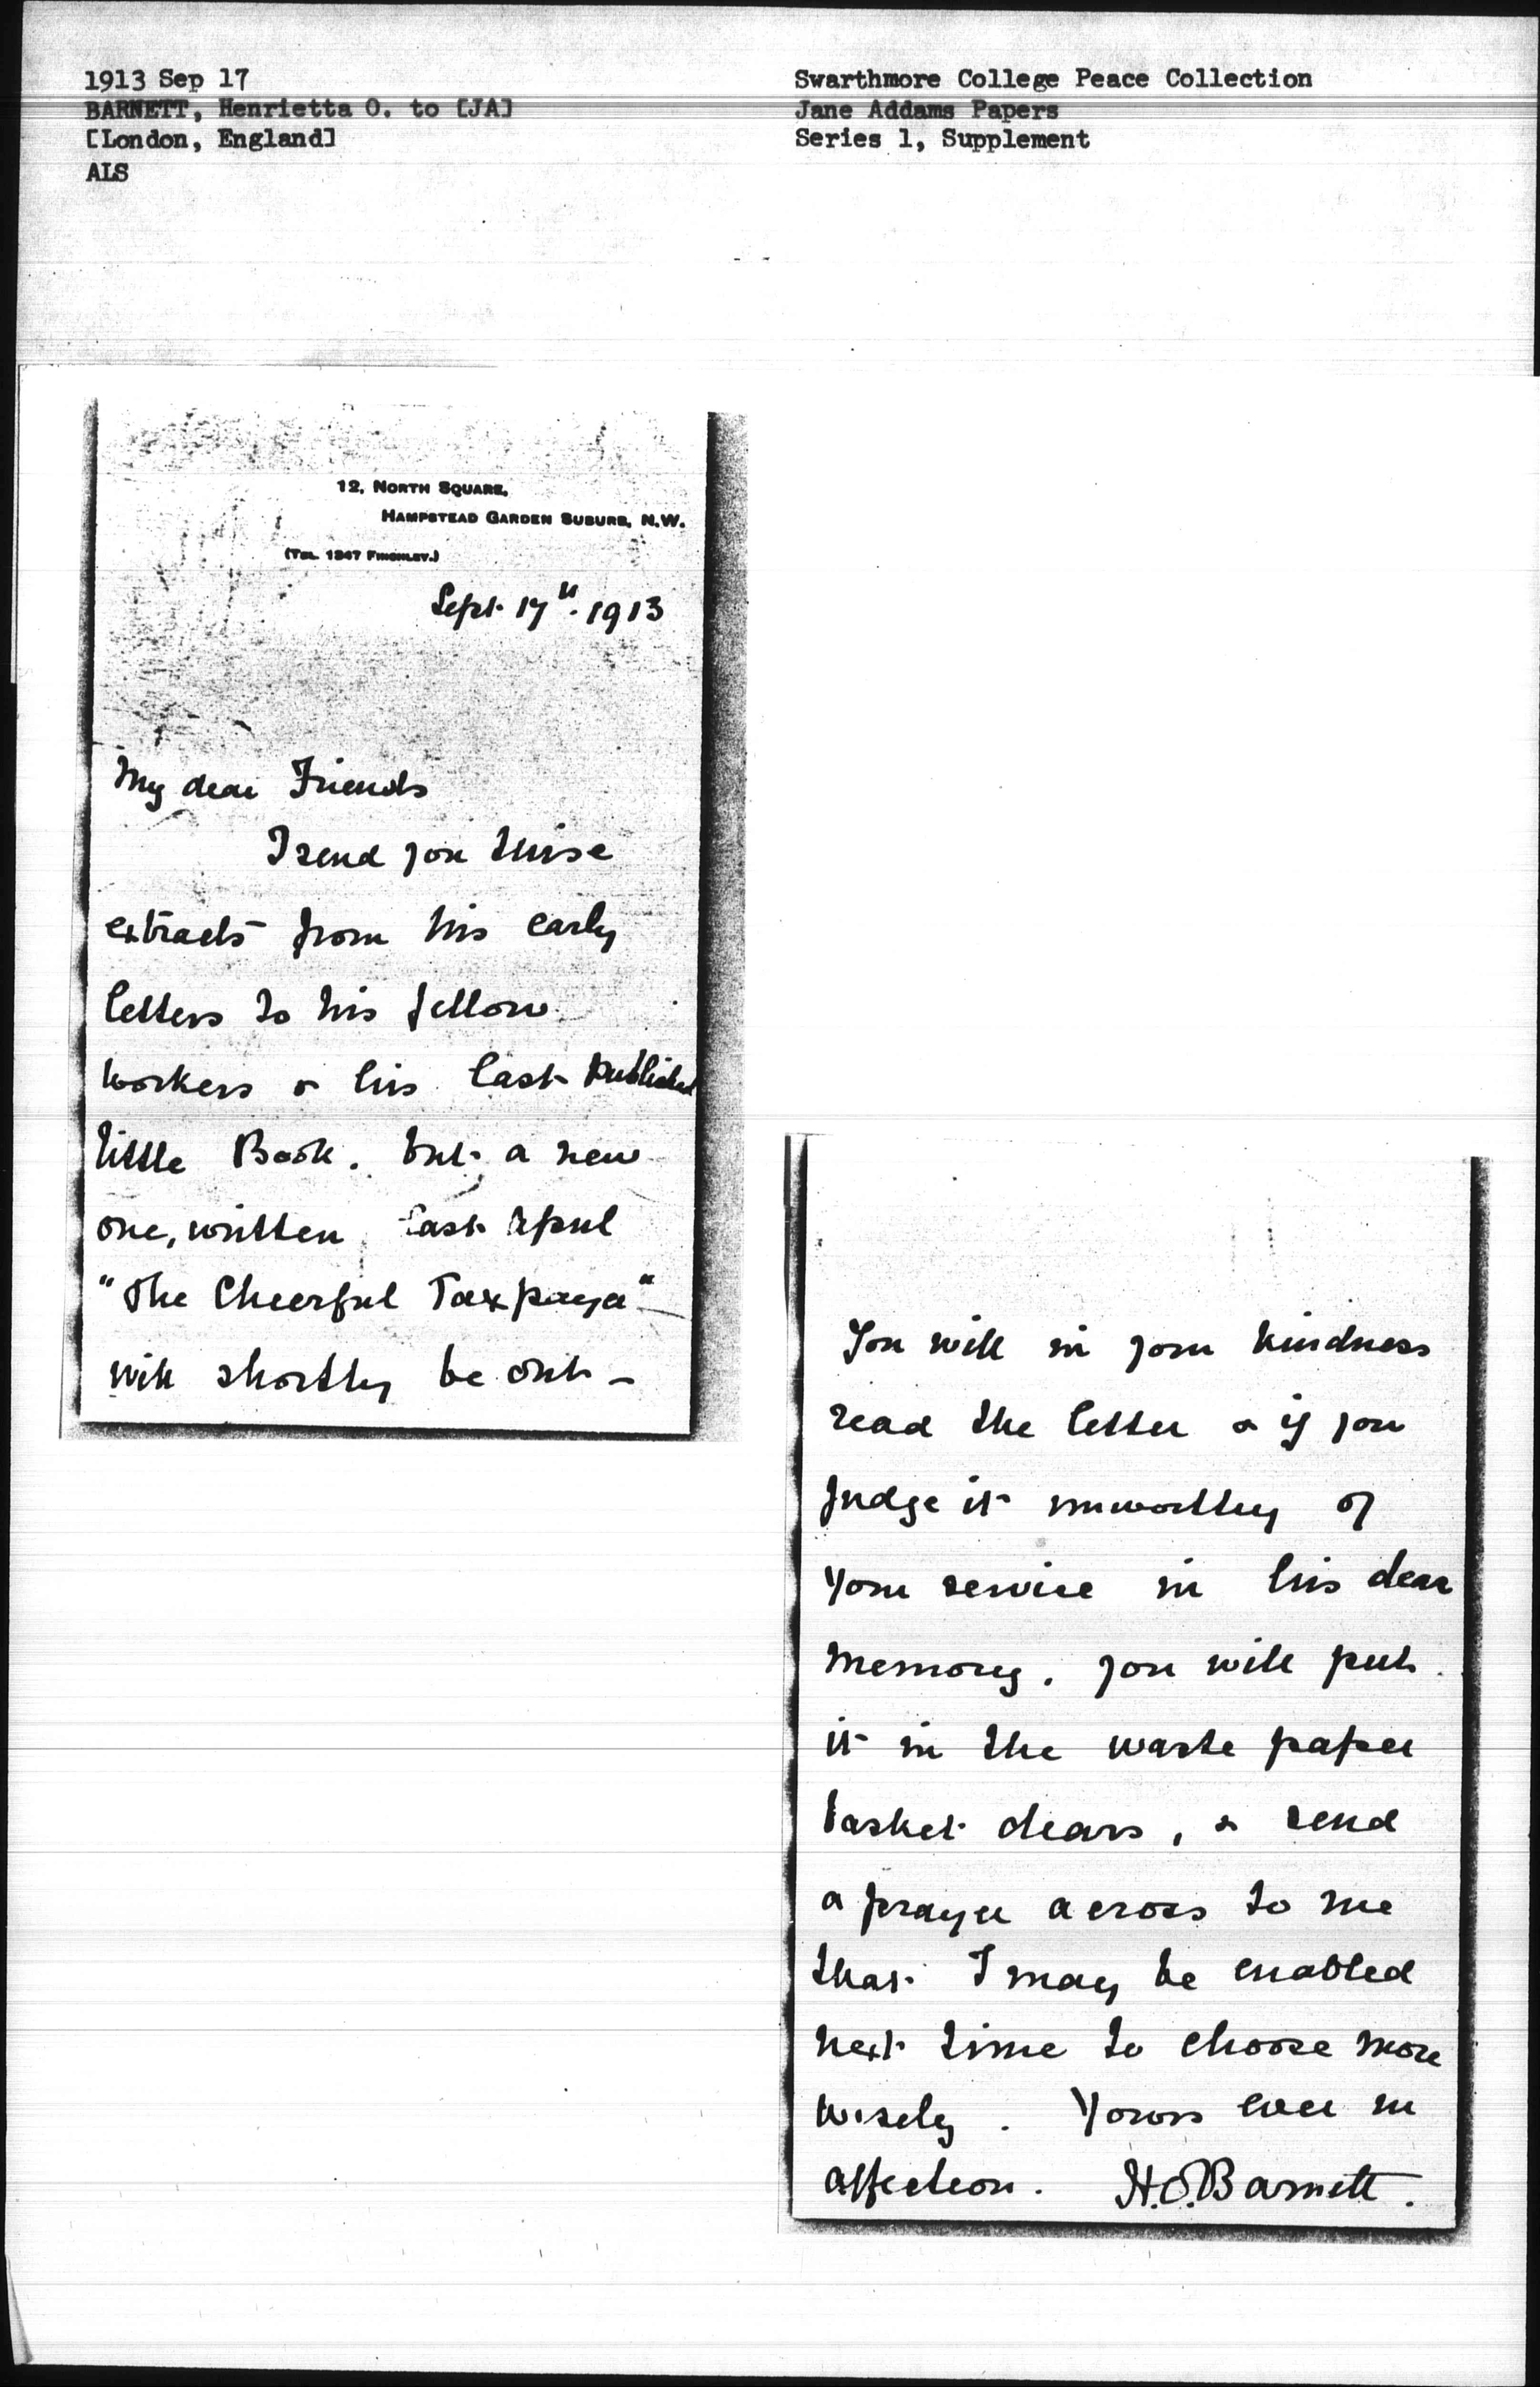 1913 Sep 17
BARNETT, Henrietta O. to [JA]
[London, England]
ALS
Swarthmore College Peace Collection
Jane Addams Papers
Series 1, Supplement
12, NORTH SQUARE,
HAMPSTEAD GARDEN SUBURB, N.W.
(TEL. 1347 FINCHLEY.)
Sept. 17th. 1913
My dear Friends
I send you these
extracts from his early
letters to his fellow
workers & his last published
little Book. but a new
one, written last April
"The Cheerful Taxpayer"
will shortly be out -
You will in your kindness
read the letter & if you
judge it unworthy of
your service in his dear
memory. you will put
it in the waste paper
basket dears, & send
a prayer across to me
that I may be enabled
next time to choose more
wisely. Yours ever in
affection. H.O. Barnett.